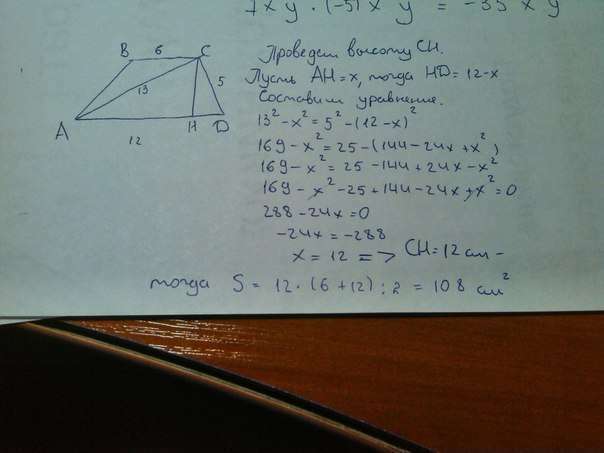 7xy · (-5)xy = -35xy
B 6 C
13 5
A H D
12
Проведем высоту CH.
Пусть AH = x, тогда HD = 12-x
Составим уравнение.
13² - x² = 5² - (12-x)²
169 - x² = 25 - (144 - 24x + x²)
169 - x² = 25 - 144 + 24x - x²
169 - x² - 25 + 144 - 24x + x² = 0
288 - 24x = 0
-24x = -288
x = 12 => CH = 12 см -
тогда S = 12 · (6 + 12) : 2 = 108 см²